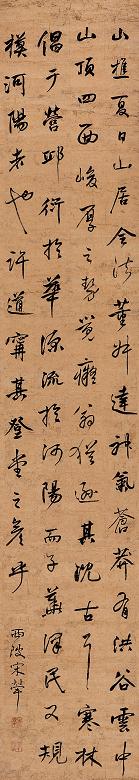 山樵夏日山居全法董叔達神氣蒼莽有洪谷雲中
山頂四面峻厚之勢覺癡翁猶遜其沈古耳寒林
倡于營邱衍於華源流於河陽而子華澤民又規
模河陽者也許道寧其登堂之彥乎
西陂宋犖